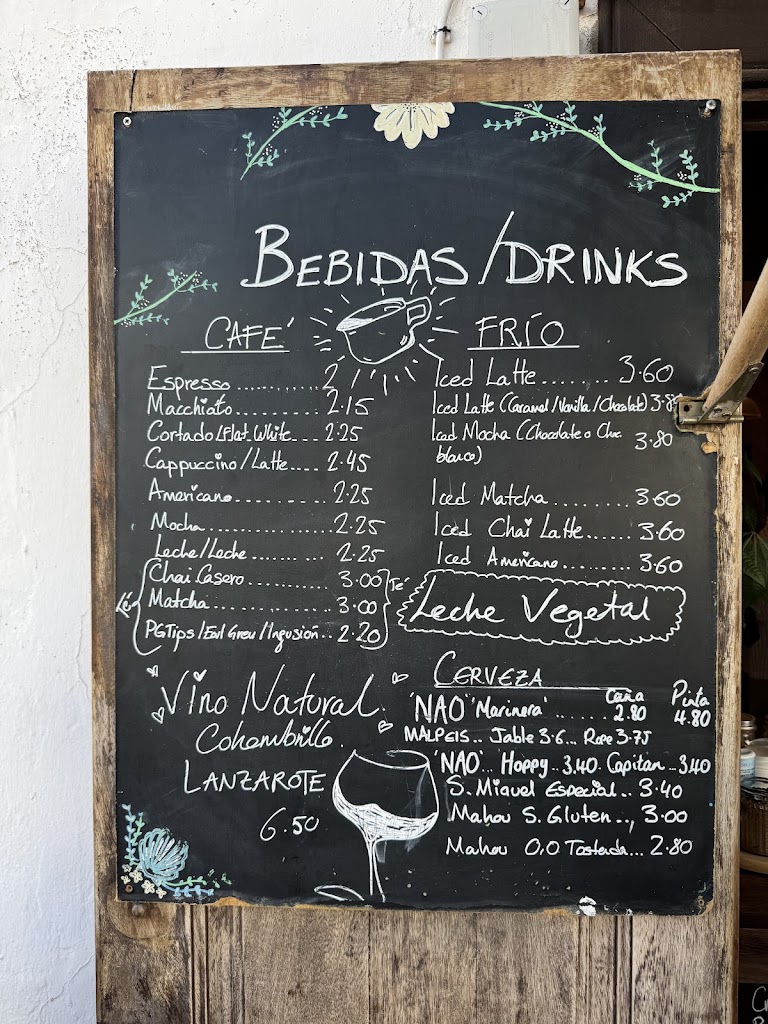 BEBIDAS/DRINKS
CAFÉ
Espresso............ 2
Macchiato......... 2.15
Cortado/Flat White.... 2.25
Cappuccino/Latte.... 2.45
Americano........... 2.25
Mocha............... 2.25
Leche/Leche......... 2.25
Chai Casero........... 3.00
Matcha............... 3.00
PGTips/Earl Grey/Ingusión.. 2.20
Té
FRÍO
Iced Latte....... 3.60
Iced Latte (Caramel/Vanilla/Chocolate) 3.80
Iced Mocha (Chocolate o Choc
blanco) 3.80
Iced Matcha........... 3.60
Iced Chai Latte..... 3.60
Iced Americano........ 3.60
Leche Vegetal
Vino Natural
LANZAROTE
6.50
CERVEZA
Caña Pinta
'NAO' 'Marinera' ....... 2.80 4.80
MALPEIS... Jable 3.6... Rofe 3.75
'NAO'... Hoppy.. 3.40 Capitan... 3.40
S. Miguel Especial.. 3.40
Mahou S. Gluten... 3.00
Mahou 0,0 Tostada... 2.80